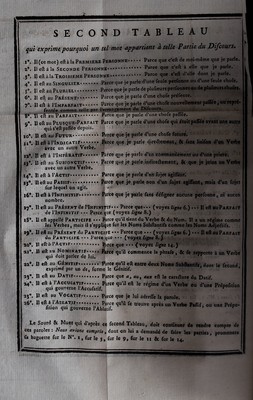 SECOND TABLEAU
qui exprime pourquoi un tel mot appartient à telle Partie du Discours.
1°. Il (ce mot) est à la PREMIERE PERSONNE Parce que c'est
2°. Il est à la SECONDE PERSONNE Parce que c'est à elle que je parle.
3°. Il est à la TROISIEME PERSONNE Parce que c'est d'elle dont je parle.
4°. Il est au SINGULIER Parce que je parle d'une seule
5°. Il est au PLURIEL Parce que je parle de plusieurs
6°. Il est au PRÉSENT Parce que je parle d'une chose présente.
7°. Il est à l'IMPARFAIT Parce que je parle d'une chose
8°. Il est au PARFAIT Parce que je parle d'une chose passée.
9°. Il est au PLUSQUE-PARFAIT Parce que je parle d'une chose qui étoit passée avant une autre
qui s'est passée depuis.
10°. Il est au FUTUR Parce que je parle d'une chose future.
11°. Il est à l'INDICATIF Parce que je parle directement, & sans liaison d'un Verbe
avec un autre Verbe.
12°. Il est à l'IMPÉRATIF Parce que je parle d'un commandement ou d'une priere.
13°. Il est au SUBJONCTIF Parce que je parle indirectement, & que je joins un Verbe
avec un autre Verbe.
14°. Il est à l'ACTIF Parce que je parle d'un Sujet agissant.
15°. Il est au PASSIF Parce que je parle non d'un Sujet agissant, mais d'un
sur lequel on agit.
16°. Il est à l'INFINITIF Parce que je parle sans désigner aucune personne, ni aucun
nombre.
17°. Il est au PRÉSENT de l'INFINITIF Parce que (voyez ligne 6.) Il est au PARFAIT
de l'INFINITIF Parce que (voyez ligne 8.)
18°. Il est appellé PARTICIPE Parce qu'il tient du Verbe & du Nom. Il a un régime comme
les Verbes, mais il s'applique sur les Noms Substantifs comme les Noms Adjectifs.
19°. Il est au PRÉSENT du PARTICIPE Parce que (voyez ligne 6.) Il est au PARFAIT
du PARTICIPE Parce que (voyez ligne 8.)
20°. Il est à l'ACTIF Parce que (voyez ligne 14.)
21°. Il est au NOMINATIF Parce qu'il commence la phrase, & se rapporte à un Verbe
qui doit parler de lui.
22°. Il est au GÉNITIF Parce qu'il est entre deux Noms Substantifs, dont le second,
exprimé par un de, forme le Génitif.
23°. Il est au DATIF Parce que à, au, aux est le caractere du Datif.
24°. Il est à l'ACCUSATIF Parce qu'il est le régime d'un Verbe ou d'une Préposition
qui gouverne l'Accusatif.
25°. Il est au VOCATIF Parce que je lui adresse la parole.
26°. Il est à l'ABLATIF Parce qu'il se trouve après un Verbe Passif, ou une Préposition
qui gouverne l'Ablatif.
Le Sourd & Muet qui d'après ce second Tableau, doit continuer de rendre compte de
ces paroles : Nous avions compris, dont on lui a demandé de faire les parties, promenera
sa baguette sur le N°. 1, sur le 5, sur le 9, sur le 11 & sur le 14.